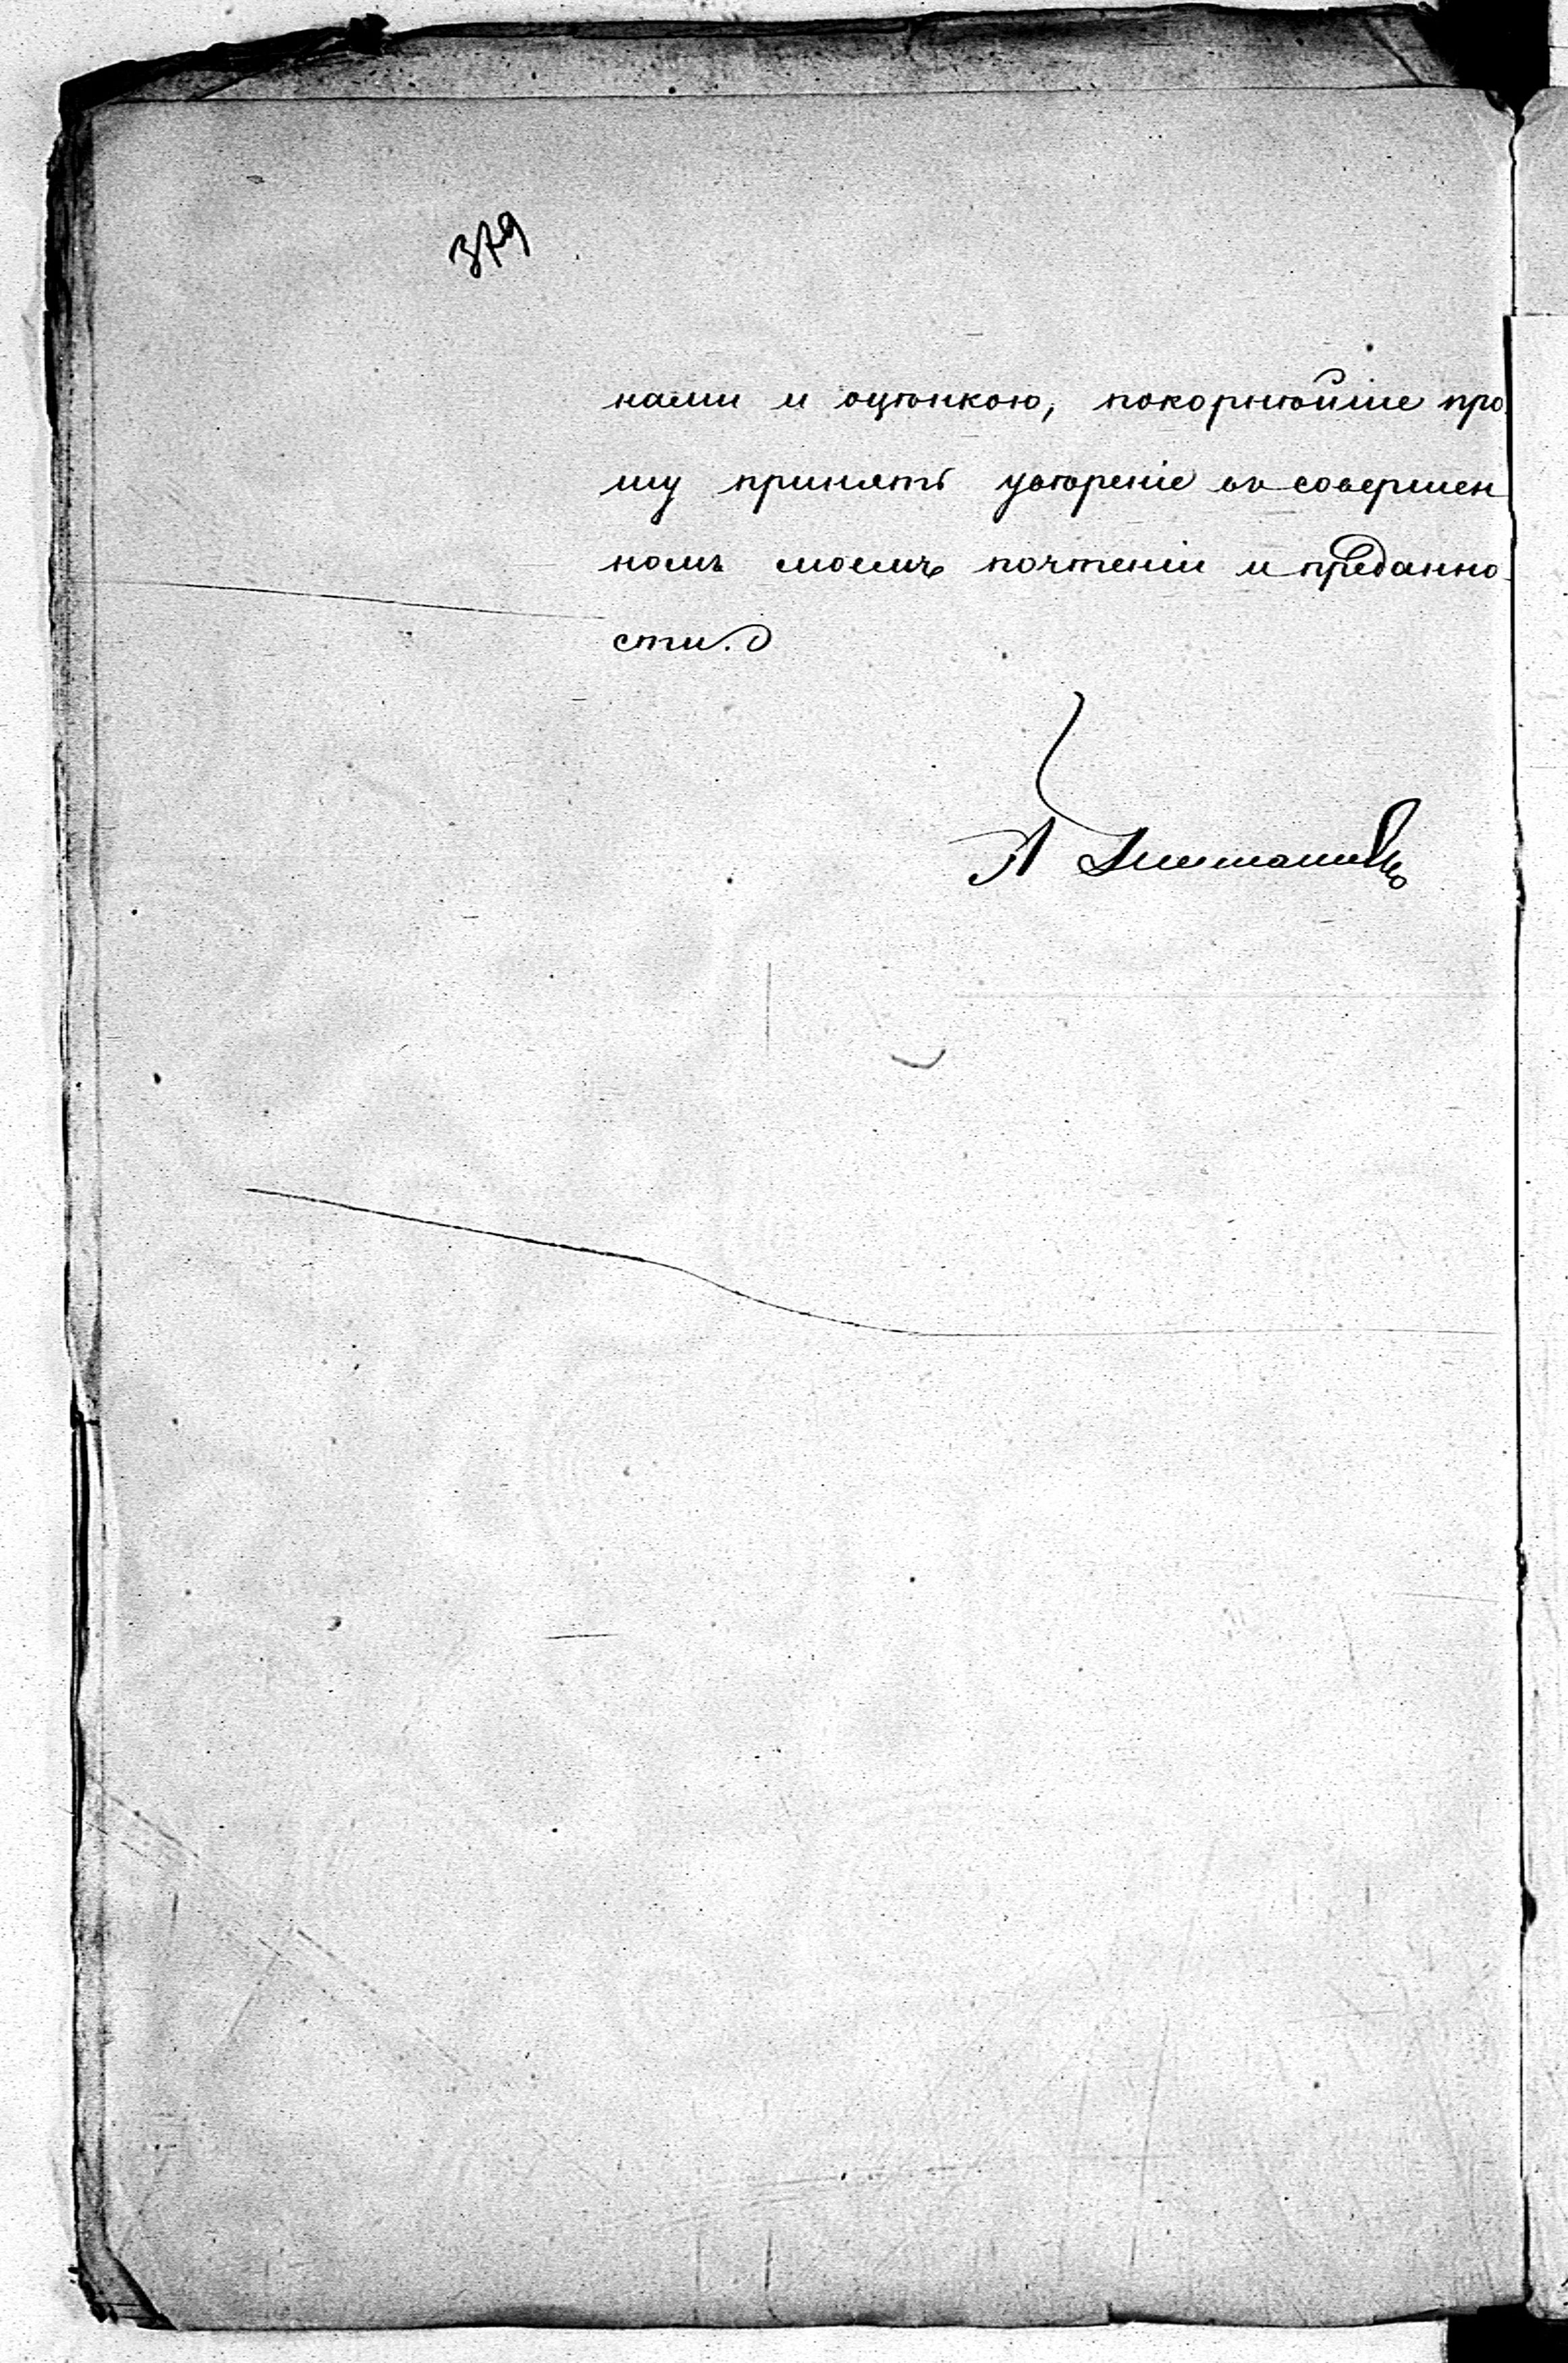 379
нами и оцѣнкою, покорнѣйше про
шу принять увѣреніе въ совершен
номъ моемъ почтеніи и преданно
сти.
А